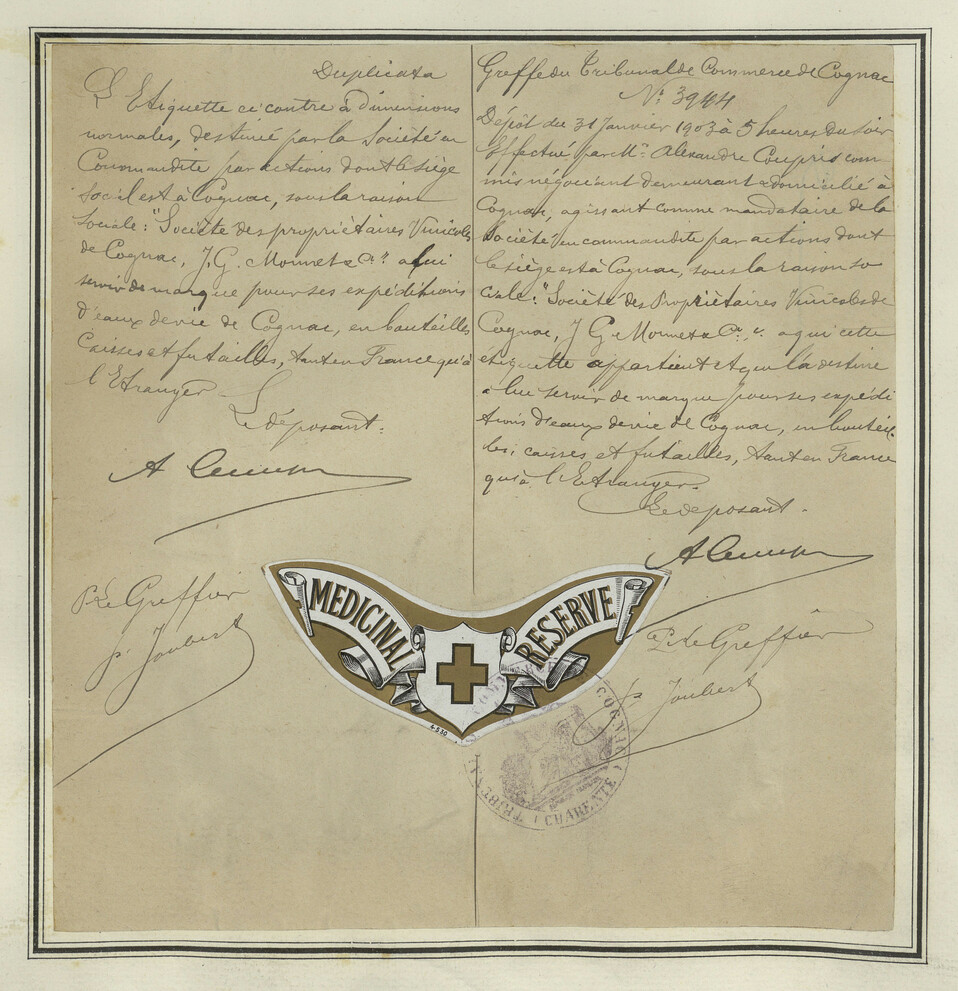 Duplicata
L'Etiquette ci contre à dimensions
normales, destinée par la Société en
Commandite par actions dont le siège
social est à Cognac, sous la raison
sociale: "Société des propriétaires Vinicoles
de Cognac, J. G. Monnet & Cie" a lui
servir de marque pour ses expéditions
d'eaux de vie de Cognac, en bouteilles
Caisses et futailles, tant en France qu'à
l'Etranger.
Le déposant.
P. Le Greffier
p. Joubert
Greffe du Tribunal de Commerce de Cognac
No. 3944
Dépôt du 31 Janvier 1903 à 5 heures du soir
Effectué par Mr. Alexandre Coupris com
mis négociant demeurant & domicilié à
Cognac, agissant comme mandataire de la
Société en commandite par actions dont
le siège est à Cognac, sous la raison so
ciale: "Société des Propriétaires Vinicoles de
Cognac, J. G. Monnet & Cie", a qui cette
étiquette appartient et qui la destine
à lui servir de marque pour ses expédi
tions d'eaux de vie de Cognac, en bouteil
les, caisses et futailles, tant en France
qu'à l'Etranger.
Le déposant.
P. Le Greffier
p. Joubert
MEDICINAL RESERVE
6530
COGNAC
(CHARENTE)